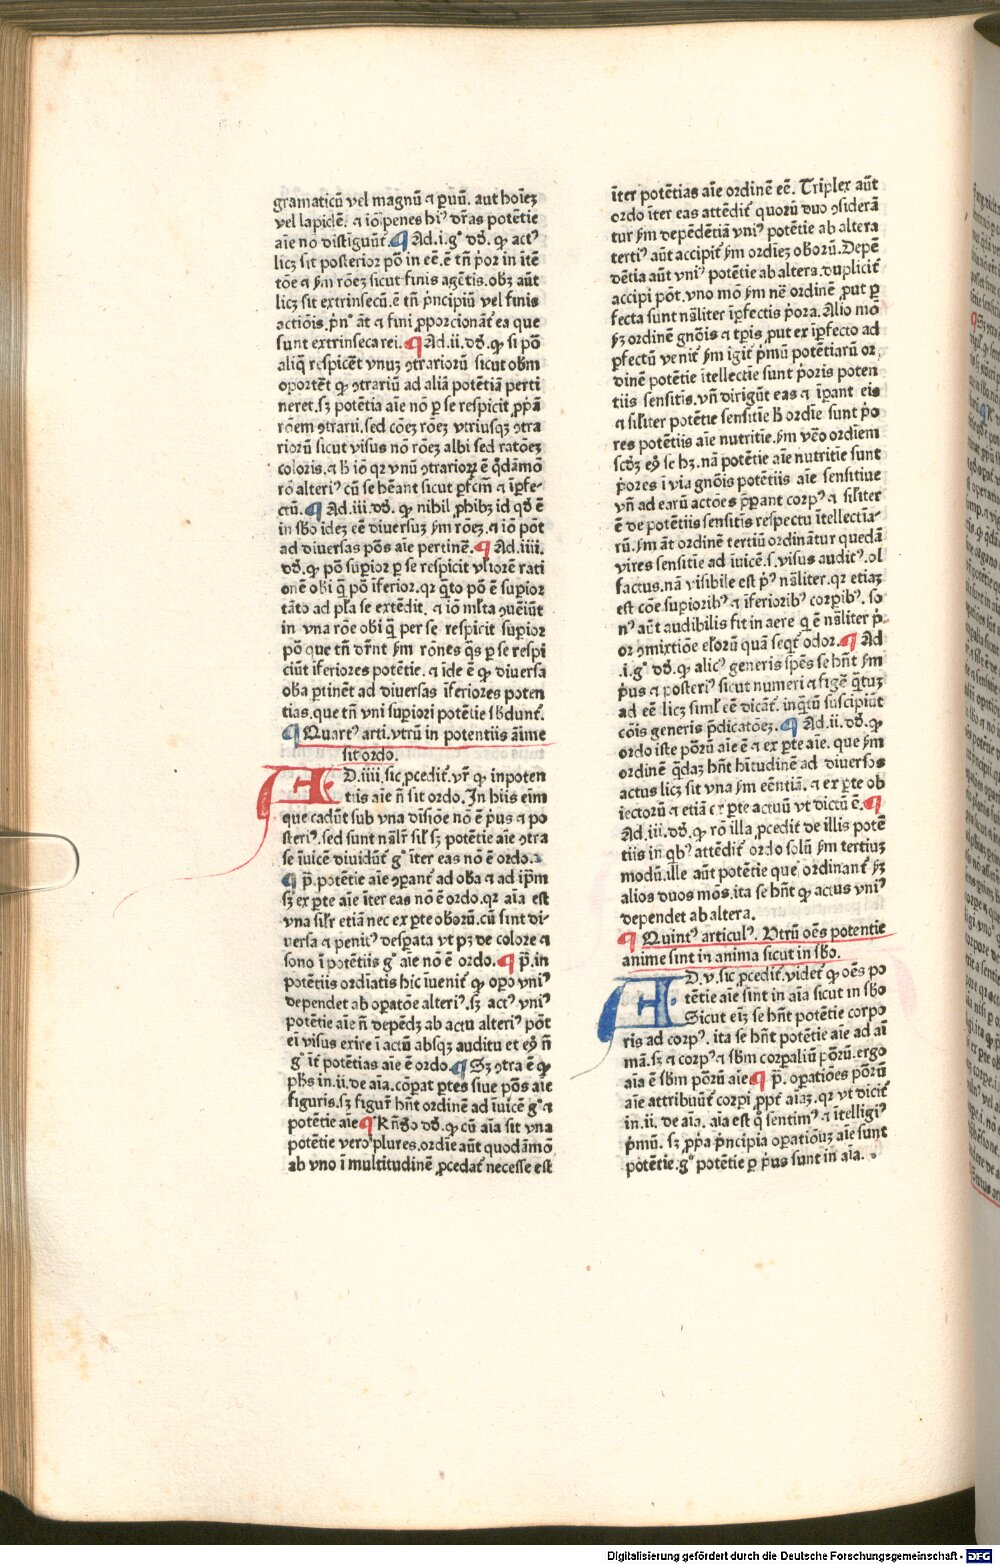 gramaticū vel magnū ⁊ ꝑuū. aut hoīeꝫ
vel lapidē. ⁊ iō penes hiꝰ dr̄as potētie
aīe nō distīguūt̄. ¶ Ad .i. gͦ dō. ꝙ actꝰ
licꝫ sit posterior pō in eē. ē tn̄ p̉or in itē
tōe ⁊ ẜm rōeꝫ sicut finis agētis. obꝫ aūt
licꝫ sit extrinsecū. ē tn̄ p̉ncipiū vel finis
actiōis. p̉nͦ āt ⁊ fini ꝓporcionāt̄ ea que
sunt extrinseca rei. ¶ Ad .ii. dō. ꝙ si pō
aliq̄ respicēt vnuꝫ ꝯtrariorū sicut obm
oportēt ꝙ ꝯtrariū ad aliā potētiā perti
neret. sꝫ potētia aīe nō ꝑ se respicit ꝓpā
rōem ꝯtrarii. sed cōeꝫ rōeꝫ vtriusqꝫ ꝯtra
riorū sicut visus nō rōeꝫ albi sed ratōeꝫ
coloris. ⁊ h̄ iō qꝛ vnū ꝯtrarioꝝ ē q̄dāmō
rō alteriꝰ cū se hēant sicut ꝑfcm̄ ⁊ īpfe-
ctū. ¶ Ad .iii. dō. ꝙ nihil ꝓhibꝫ id qd̄ ē
in sb̄o ideꝫ eē diuersuꝫ ẜm rōeꝫ. ⁊ iō pōt
ad diuersas pōs aīe pertinē. ¶ Ad .iiii.
dō. ꝙ pō supior ꝑ se respicit vl̄iorē rati
onē obi q̄ pō īferior. qꝛ q̄to pō ē supior
tāto ad pl̄a se extēdit. ⁊ iō ml̄ta ꝯueiūt
in vna rōe obi q̄ per se respicit supior
pō que tn̄ dr̄nt ẜm rones q̄s ꝑ se respi
ciūt īferiores potētie. ⁊ ide ē ꝙ diuersa
oba ꝑtinēt ad diuersas īferiores poten
tias. que tn̄ vni supiori potētie sb̄dunt̄.
¶ Quartꝰ arti. vtrū in potentiis aīme
sit ordo.
AD .iiii. sic ꝓcedit̄. vr̄ ꝙ in poten
tiis aīe n̄ sit ordo. In hiis eīm
que cadūt sub vna disiōe nō ē p̉us ⁊ po
steriꝰ. sed sunt nālr̄ sil̄ sꝫ potētie aīe ꝯtra
se īuicē diuidūt̄ gͦ īter eas nō ē ordo.
¶ p̄. potētie aīe ꝯꝑant̄ ad oba ⁊ ad ip̄m
sꝫ ex ꝑte aīe īter eas nō ē ordo. qꝛ aīa est
vna silr̄ etiā nec ex ꝑte oborū. cū sint di-
uersa ⁊ penitꝰ despata vt pꝫ de colore ⁊
sono ī potētiis gͦ aīe nō ē ordo. ¶ p̄. in
potētiis ordiatis hic īuenit̄ ꝙ opo vniꝰ
dependet ab opatōe alteriꝰ. sꝫ actꝰ vniꝰ
potētie aīe n̄ depēdꝫ ab actu alteriꝰ pōt
ei visus exire ī actū absqꝫ auditu et eꝯ n̄
gͦ īt̄ potētias aīe ē ordo. ¶ Sꝫ ꝯtra ē ꝙ
ph̄s in .ii. de aīa. cōpat ꝑtes siue pōs aīe
figuris. sꝫ figur̄ hn̄t ordinē ad īuicē gͦ ⁊
potētie aīe ¶ Rn̄do dō. ꝙ cū aīa sit vna
potētie vero plures. ordie aūt quodāmō
ab vno ī multitudinē ꝓcedat̄ necesse est
īter potētias aīe ordinē eē. Triplex aūt
ordo īter eas attēdit̄ quorū duo ꝯsiderā
tur ẜm depēdētiā vniꝰ potētie ab altera
tertiꝰ aūt accipit̄ ẜm ordīeꝫ oborū. Depē
dētia aūt vniꝰ potētie ab altera. duplicit̄
accipi pōt. vno mō ẜm nē ordinē put ꝑ
fecta sunt nāliter īpfectis p̉ora. Alio mō
ẜꝫ ordinē gnōis ⁊ tꝑis, put ex īpfecto ad
ꝑfectū venit̄ ẜm igit̄ p̉mū potētiarū or
dinē potētie ītellectie sunt p̉oris poten
tiis sensitis. vn̄ dirigūt eas ⁊ īpant eis
⁊ sil̄iter potētie sensitīe h̄ ordie sunt p̉o
res potētiis aīe nutritie. ẜm vēo ordīem
scdꝫ eꝯ se hꝫ. nā potētie aīe nutritie sunt
p̉ores ī via gnōis potētiis aīe sensitiue
vn̄ ad earū actōes p̄ꝑant corpꝰ ⁊ sil̄iter
ē de potētiis sensitis respectu ītellectia-
rū. ẜm āt ordinē tertiū ordinātur quedā
vires sensitie ad īuicē. s. visus auditꝰ. ol
factus. nā visibile est p̉ꝰ nāliter. qꝛ etiaꝫ
est cōe supioribꝰ ⁊ īferioribꝰ corpibꝰ. so
nꝰ aūt audibilis fit in aere q̄ ē nāliter p̉-
or ꝯmixtiōe elorū quā seqt̄ odor. ¶ Ad
.i. gͦ dō. ꝙ alicꝰ generis sp̄es se hn̄t ẜm
p̉us ⁊ posteriꝰ sicut numeri ⁊ figē q̄tuꝫ
ad eē licꝫ siml̄ eē dicāt̄. inq̄tū suscipiūt
cōis generis p̄dicatōeꝫ. ¶ Ad .ii. dō. ꝙ
ordo iste pōrū aīe ē ⁊ ex ꝑte aīe. que ẜm
ordinē q̄daꝫ hn̄t hītudinē ad diuersos
actus licꝫ sit vna ẜm eēntiā. ⁊ ex ꝑte ob
iectorū ⁊ etiā ex ꝑte actuū vt dictū ē. ¶
Ad .iii. dō. ꝙ rō illa ꝓcedit̄ de illis potē
tiis in qbꝰ attēdit̄ ordo solū ẜm tertiuꝫ
modū. ille aūt potētie que ordinant̄ ẜꝫ
alios duos mōs. ita se hn̄t ꝙ actus vniꝰ
dependet ab altera.
¶ Quintꝰ articulꝰ. Vtrū oēs potentie
anime sint in anima sicut in sb̄o.
AD .v. sic ꝓcedit̄. videt̄ ꝙ oēs po
tētie aīe sint in aīa sicut in sb̄o
Sicut eiꝫ se hn̄t potētie corpo
ris ad corpꝰ. ita se hn̄t potētie aīe ad aī
mā. sꝫ ⁊ corpꝰ ⁊ sb̄m corpaliū pōrū. ergo
aīa ē sb̄m pōrū aīe ¶ p̄. opatiōes pōrū
aīe attribuūt̄ corpi ꝓpt̄ aīaꝫ. qꝛ vt dicit̄
in .ii. de aīa. aīa est q̄ sentimꝰ ⁊ ītelligiꝰ
p̉mū. sꝫ ꝓpa p̉ncipia opatiōuꝫ aīe sunt
potētie. gͦ potētie ꝑ p̉us sunt in aīa.
Digitalisierung gefördert durch die Deutsche Forschungsgemeinschaft - DFG